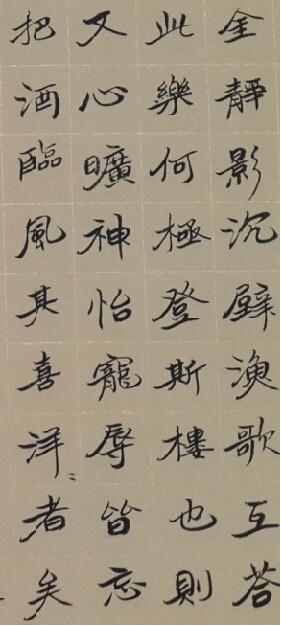 金靜影沉壁漁歌互荅
此樂何極登斯樓也則
又心曠神怡寵辱皆忘
把酒臨風其喜洋〻者矣